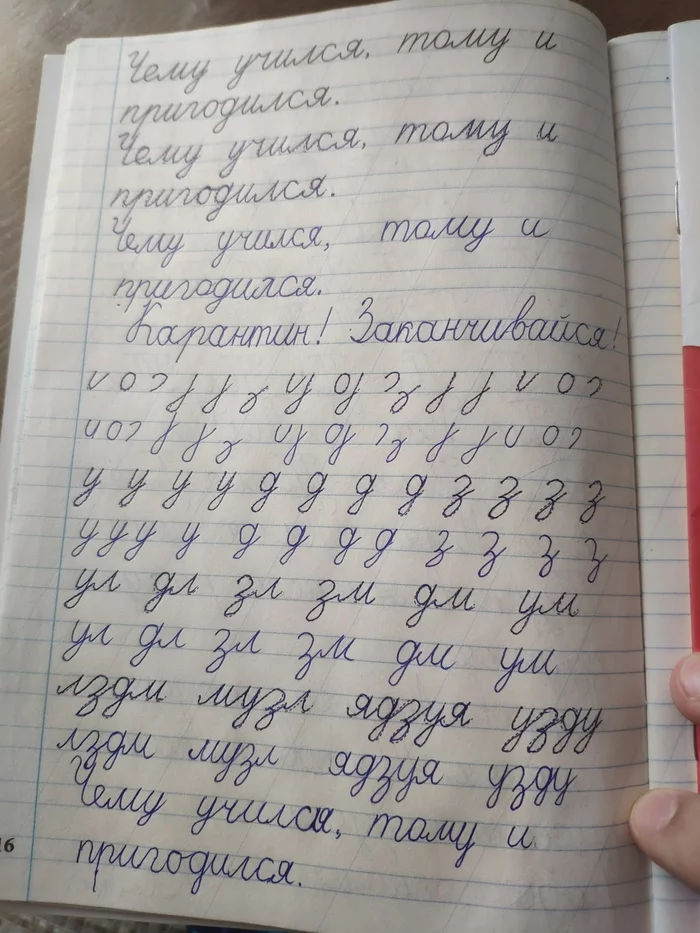 Чему учился, тому и
пригодился.
Чему учился, тому и
пригодился.
Чему учился, тому и
пригодился.
Карантин! Заканчивайся!
у у у у д д д д з з з з
у у у у д д д д з з з з
ул дл зл зм дм ум
ул дл зл зм дм ум
лздм музл ядзуя узду
лздм музл ядзуя узду
Чему учился, тому и
пригодился.
16